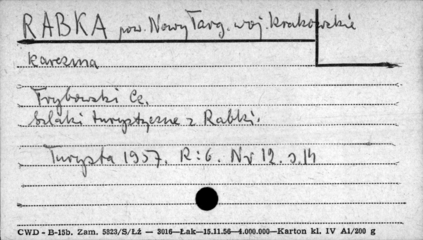 RABKA pow. Nowy Targ. woj. krakowskie
karczma
Trybowski Cz.
Szlaki turystyczne z Rabki.
Turysta 1957. R: 6. Nr 12. s. 14
CWD - B-15b. Zam. 5523/S/Łż — 3016—Łak—15.11.56—4.000.000—Karton kl. IV A1/200 g